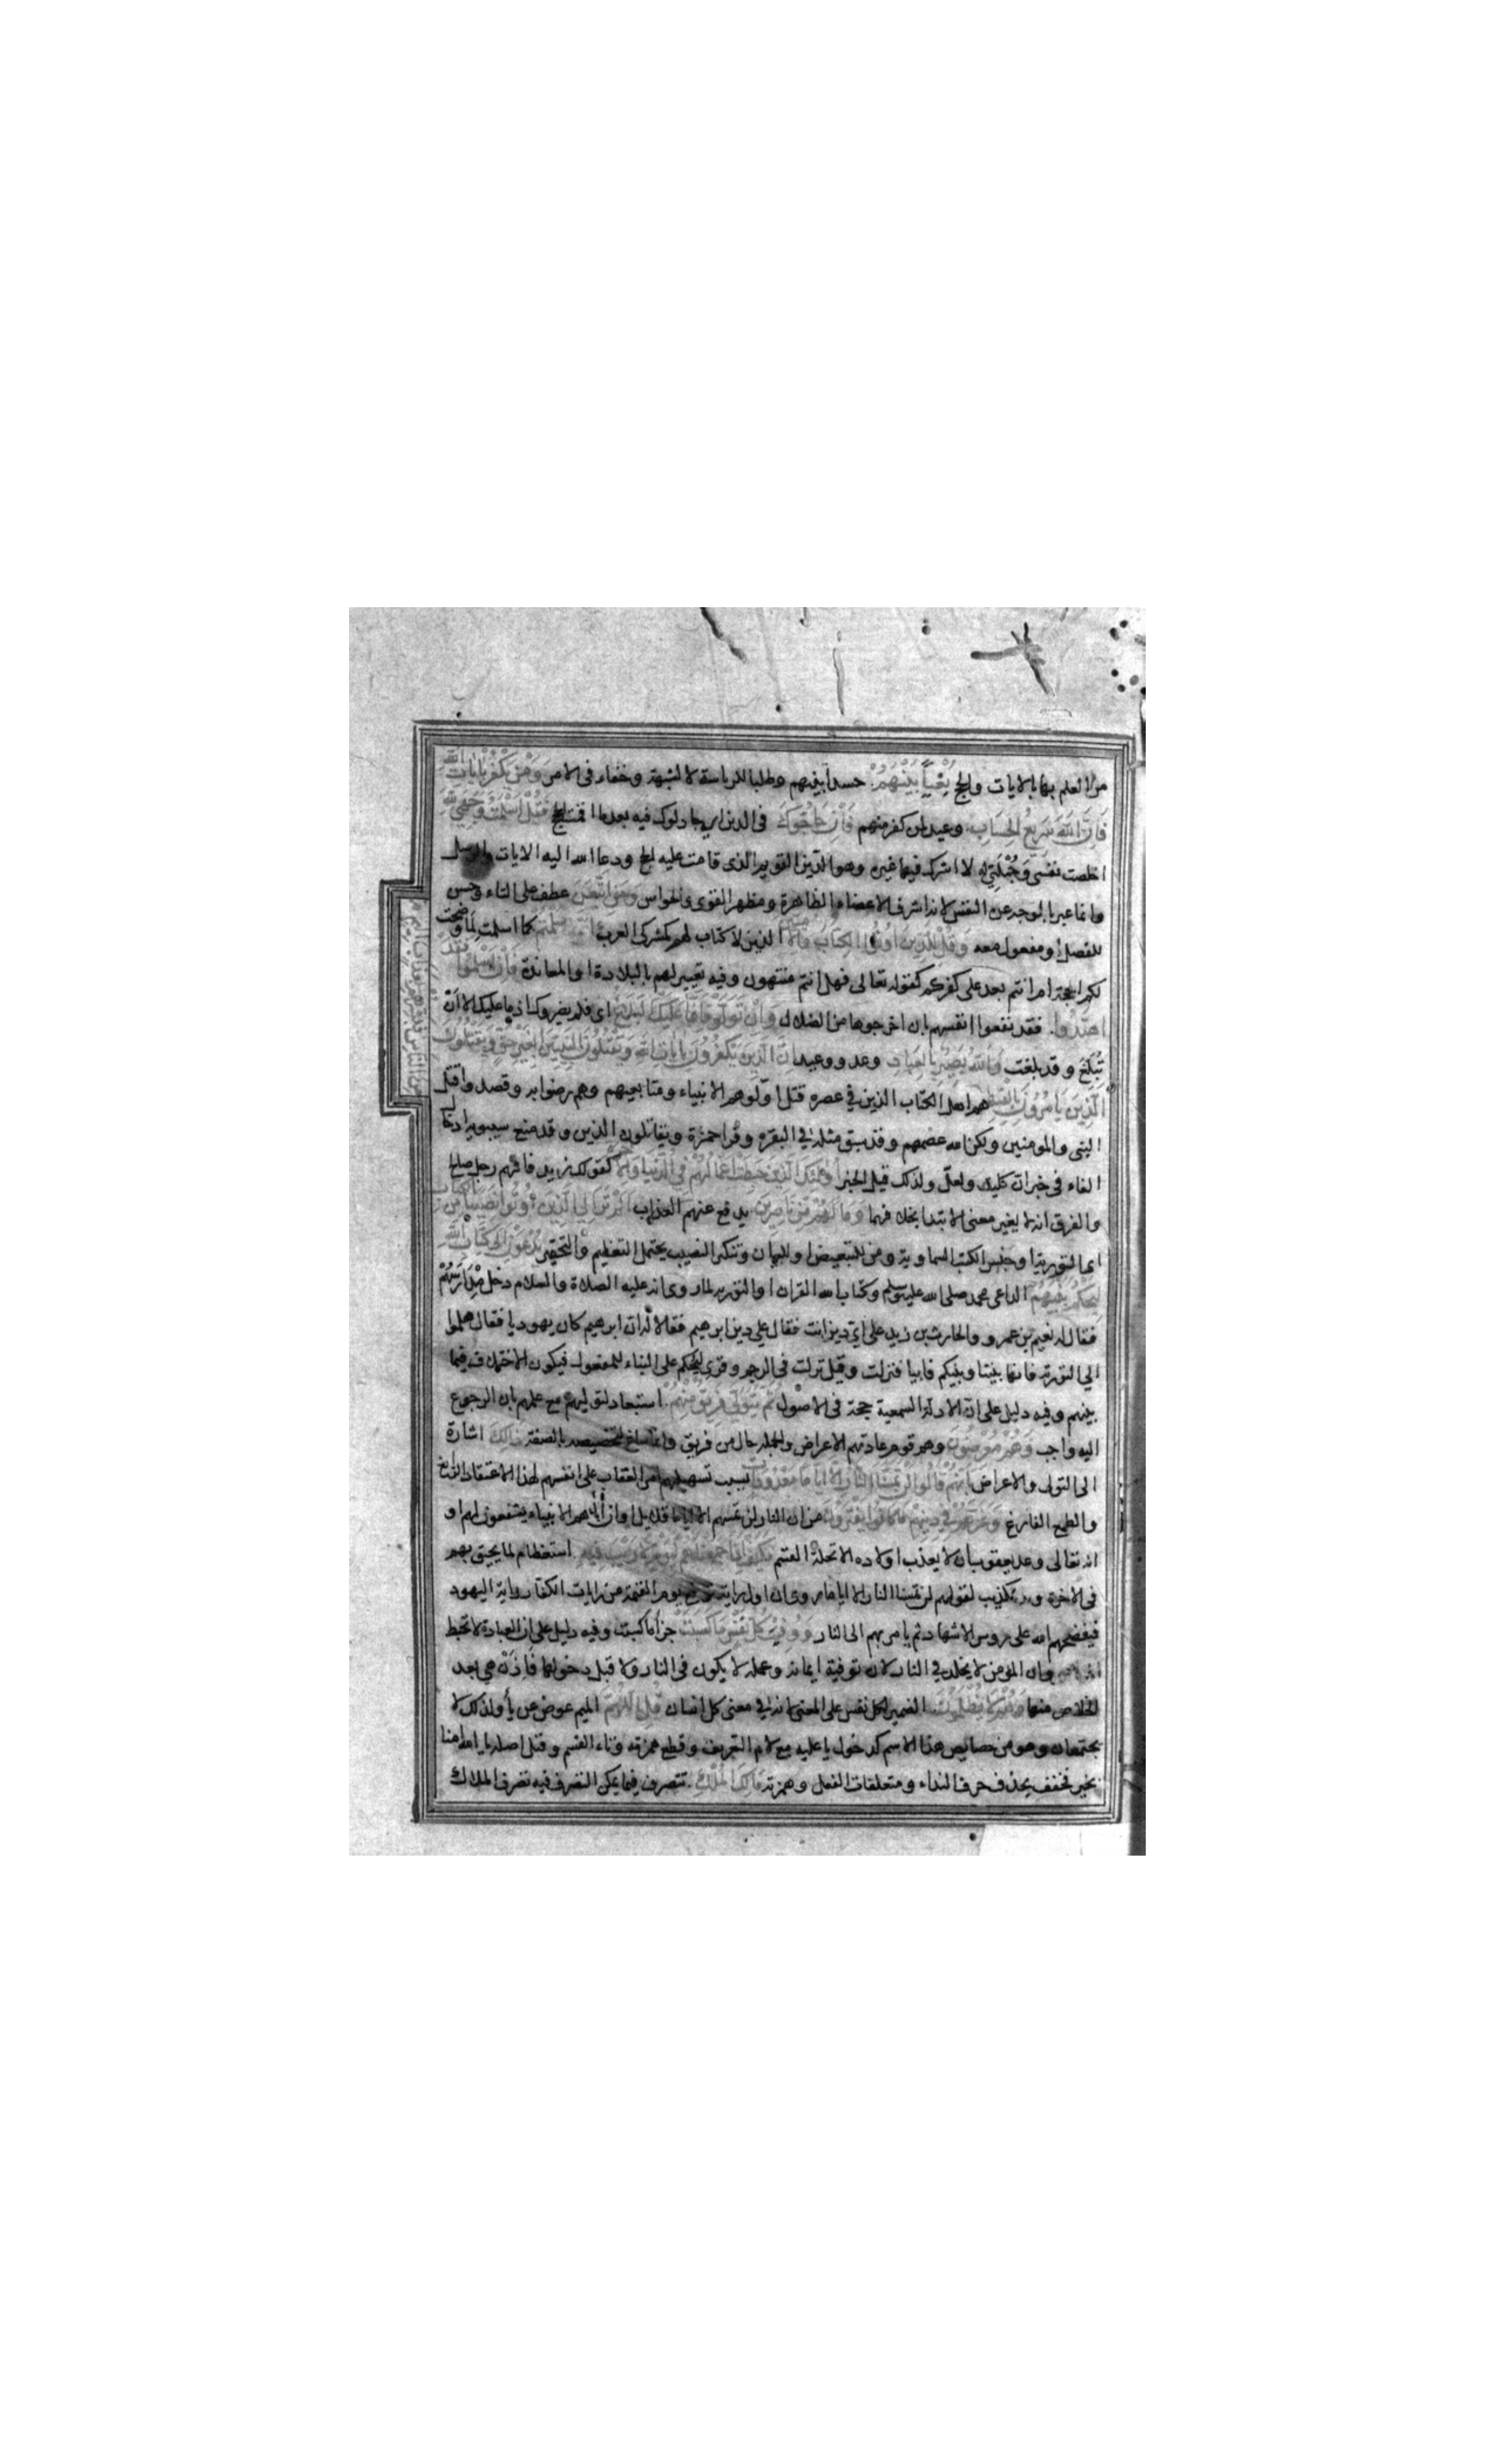 من العلم بها بالايات والحج بَغْياً بَيْنَهُمْ حسداً بينهم وطلبا للرياسة لا لشبهة وخفاء في الامر وَمَنْ يَكْفُرْ بِاٰيَاتِ اللّٰهِ
فَاِنَّ اللّٰهَ سَرِيعُ الْحِسَابِ وعيد لمن كفر منهم فَاِنْ حَاجُّوكَ في الدين او جادلوك فيه بعدما اقمت الحج فَقُلْ اَسْلَمْتُ وَجْهِيَ لِلّٰهِ
اخلصت نفسي وَجُمْلَتِي له لا اشرك فيها غيره وهو الدين القويم الذي قامت عليه الحج ودعا اليه الايات والرسل
وانما عبر بالوجه عن النفس لانه اشرف الاعضاء الظاهرة ومظهر القوى والحواس وَمَنِ اتَّبَعَنِ عطف على التاء وحسن
للفصل او مفعول معه وَقُلْ لِلَّذِينَ اُوتُوا الْكِتَابَ وَالْاُمِّيِّينَ الذين لا كتاب لهم كمشركي العرب ءَاَسْلَمْتُمْ كما اسلمت لما وضحت
لكم الحجة ام انتم بعد على كفركم كقوله تعالى فهل انتم منتهون وفيه تعيير لهم بالبلادة او المعاندة فَاِنْ اَسْلَمُوا فَقَدِ
اهْتَدَوْا فقد نفعوا انفسهم بان اخرجوها من الضلال وَاِنْ تَوَلَّوْا فَاِنَّمَا عَلَيْكَ الْبَلَاغُ اي فلم يضروك اذ ما عليك الا اَنْ
تُبَلِّغَ وقد بلغت وَاللّٰهُ بَصِيرٌ بِالْعِبَادِ وعد ووعيد اِنَّ الَّذِينَ يَكْفُرُونَ بِاٰيَاتِ اللّٰهِ وَيَقْتُلُونَ النَّبِيِّينَ بِغَيْرِ حَقٍّ وَيَقْتُلُونَ
الَّذِينَ يَأْمُرُونَ بِالْقِسْطِ هم اهل الكتاب الذين في عصره قتل اولوهم الانبياء ومتابعيهم وهم رضوا به وقصدوا قتل
النبي والمومنين ولكن الله عصمهم وقد سبق مثله في البقرة وقرا حمزة ويقاتلون الذين وقد منع سيبويه ادخال
الفاء في خبر ان كليت ولعل ولذلك قيل الخبر اُولٰئِكَ الَّذِينَ حَبِطَتْ اَعْمَالُهُمْ فِي الدُّنْيَا وَالْاٰخِرَةِ كقولك زيد فافهم رجل صالح
والفرق انه لا يغير معنى الابتدا بخلافهما وَمَا لَهُمْ مِنْ نَاصِرِينَ يدفع عنهم العذاب اَلَمْ تَرَ اِلَى الَّذِينَ اُوتُوا نَصِيباً مِنَ الْكِتَابِ
اي التورية او جنس الكتب السماوية ومن للتبعيض او للبيان وتنكير النصيب يحتمل التعظيم والتحقير يُدْعَوْنَ اِلٰى كِتَابِ اللّٰهِ
لِيَحْكُمَ بَيْنَهُمْ الداعي محمد صلى الله عليه وسلم وكتاب الله القران او التورية لما روي انه عليه الصلاة والسلام دخل مِدْرَاسَهُمْ
فقال له نعيم بن عمرو والحارث بن زيد على اي دين انت فقال على دين ابرهيم فقالا له ان ابرهيم كان يهوديا فقال هلموا
الى التورية فانها بيننا وبينكم فابيا فنزلت وقيل نزلت في الرجم وقرئ لِيُحْكَمَ على البناء للمفعول فيكون الاختلاف فيما
بينهم وفيه دليل على ان الادلة السمعية حجة في الاصول ثُمَّ يَتَوَلّٰى فَرِيقٌ مِنْهُمْ استبعاد لتوليهم مع علمهم بان الرجوع
اليه واجب وَهُمْ مُعْرِضُونَ وهم قوم عادتهم الاعراض والجملة حال من فريق وانما ساغ لتخصيصه بالصفة ذٰلِكَ اشارة
الى التولي والاعراض بِاَنَّهُمْ قَالُوا لَنْ تَمَسَّنَا النَّارُ اِلَّا اَيَّاماً مَعْدُودَاتٍ بسبب تسهيلهم امر العقاب على انفسهم لهذا الاعتقاد الزايغ
والطمع الفارغ وَغَرَّهُمْ فِي دِينِهِمْ مَا كَانُوا يَفْتَرُونَ من ان النار لن تمسهم الا اياما قلايل او ان آباءهم الانبياء يشفعون لهم او
انه تعالى وعد يعقوب ان لا يعذب اولاده الا تحلة القسم فَكَيْفَ اِذَا جَمَعْنَاهُمْ لِيَوْمٍ لَا رَيْبَ فِيهِ استعظام لما يحيق بهم
في الاخرة وتكذيب لقولهم لن تمسنا النار الا اياما روي ان اول راية ترفع يوم القيمة من رايات الكفار راية اليهود
فيفضحهم الله على روس الاشهاد ثم يامر بهم الى النار وَوُفِّيَتْ كُلُّ نَفْسٍ مَا كَسَبَتْ جزا ما كسبت وفيه دليل على ان العبادة لا تحبط
وان المؤمن لا يخلد في النار لان توفية ايمانه وعمله لا يكون في النار ولا قبل دخولها فَاِذَنْ هي بعد
الخلاص منها وَهُمْ لَا يُظْلَمُونَ الضمير لكل نفس على المعنى لانه في معنى كل انسان قُلِ اللّٰهُمَّ الميم عوض عن يا ولذلك لا
يجتمعان وهو من خصايص هذا الاسم كدخول يا عليه مع لام التعريف وقطع همزته وتاء القسم وقيل اصله يا الله امنا
بخير فخفف بحذف حرف النداء ومتعلقات الفعل وهمزته مَالِكَ الْمُلْكِ تتصرف فيما يمكن التصرف فيه تصرف الملاك